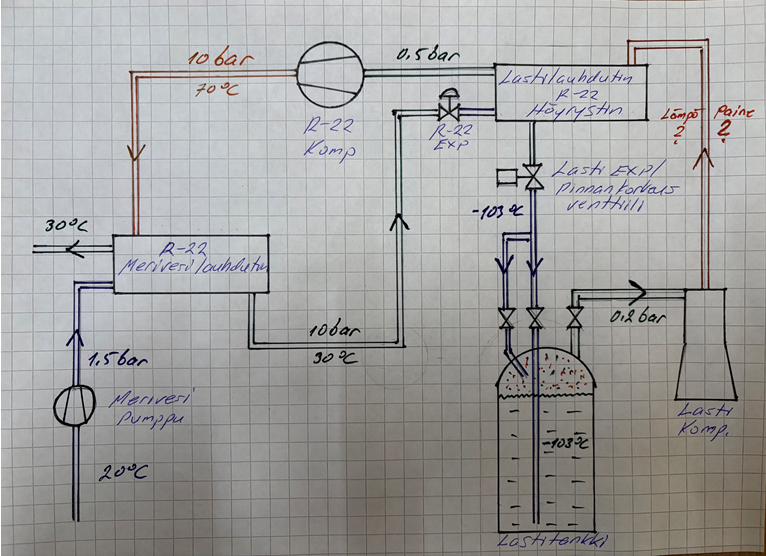 10 bar
70°C
0.5 bar
R-22
Komp
R-22
EXP
Lastilauhdutin
R-22
Höyrystin
Lämpö
?
Paine
?
Lasti EXP/
pinnankorkeus
venttiili
-103°C
30°C
R-22
Merivesilauhdutin
10 bar
30°C
0.2 bar
1.5 bar
Merivesi
Pumppu
20°C
Lasti
Komp.
-103°C
Lastitankki